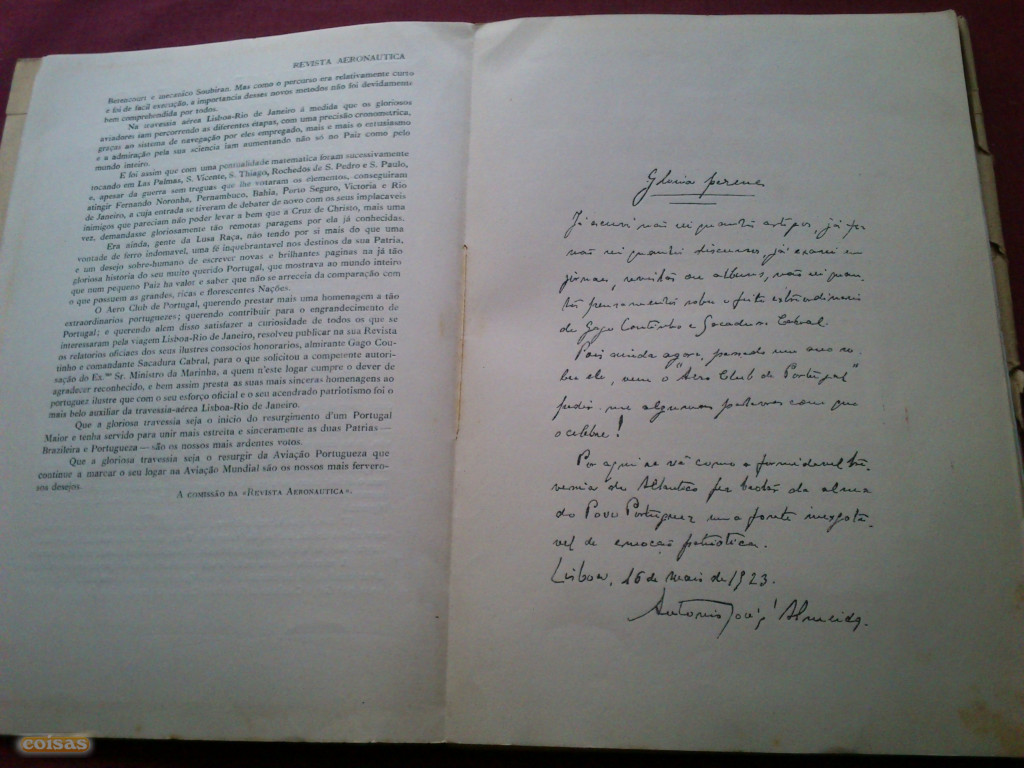 REVISTA AERONAUTICA
Betencourt e mecanico Soubiran. Mas como o percurso era relativamente curto
e foi de facil execução, a importancia desses novos metodos não foi devidamente
bem comprehendida por todos.
Na travessia aérea Lisboa-Rio de Janeiro á medida que os gloriosos
aviadores iam percorrendo as diferentes étapas, com uma precisão cronometrica,
graças ao sistema de navegação por eles empregado, mais e mais o entusiasmo
e a admiração pela sua sciencia iam aumentando não só no Paiz como pelo
mundo inteiro.
E foi assim que com uma pontualidade matematica foram sucessivamente
tocando em Las Palmas, S. Vicente, S. Thiago, Rochedos de S. Pedro e S. Paulo,
e, apesar da guerra sem treguas que lhe votaram os elementos, conseguiram
atingir Fernando Noronha, Pernambuco, Bahia, Porto Seguro, Victoria e Rio
de Janeiro, a cuja entrada se tiveram de debater de novo com os seus implacaveis
inimigos que pareciam não poder levar a bem que a Cruz de Christo, mais uma
vez, demandasse gloriosamente tão remotas paragens por ela já conhecidas.
Era ainda, gente da Lusa Raça, não tendo por si mais do que uma
vontade de ferro indomavel, uma fé inquebrantavel nos destinos da sua Patria,
e um desejo sobre-humano de escrever novas e brilhantes paginas na já tão
gloriosa historia do seu muito querido Portugal, que mostrava ao mundo inteiro
que num pequeno Paiz ha valor e saber que não se arreceia da comparação com
o que possuem as grandes, ricas e florescentes Nações.
O Aero Club de Portugal, querendo prestar mais uma homenagem a tão
extraordinarios portuguezes; querendo contribuir para o engrandecimento de
Portugal; e querendo alem disso satisfazer a curiosidade de todos os que se
interessaram pela viagem Lisboa-Rio de Janeiro, resolveu publicar na sua Revista
os relatorios oficiaes dos seus ilustres consocios honorarios, almirante Gago Cou-
tinho e comandante Sacadura Cabral, para o que solicitou a competente autori-
sação do Ex.mo Sr. Ministro da Marinha, a quem n'este logar cumpre o dever de
agradecer reconhecido, e bem assim presta as suas mais sinceras homenagens ao
portuguez ilustre que com o seu esforço oficial e o seu acendrado patriotismo foi o
mais belo auxiliar da travessia-aérea Lisboa-Rio de Janeiro.
Que a gloriosa travessia seja o inicio do resurgimento d'um Portugal
Maior e tenha servido para unir mais estreita e sinceramente as duas Patrias —
Brazileira e Portugueza — são os nossos mais ardentes votos.
Que a gloriosa travessia seja o resurgir da Aviação Portugueza que
continue a marcar o seu logar na Aviação Mundial são os nossos mais fervero-
sos desejos.
A COMISSÃO DA «REVISTA AERONAUTICA».
Gloria perene
Já escrevi não sei quantos artigos, já fiz
não sei quantos discursos, já exarei em
jornaes, revistas ou albuns, não sei quan-
tos pensamentos sobre o feito extraordinario
de Gago Coutinho e Sacadura Cabral.
Pois ainda agora, passado um ano so-
bre ele, vem o "Aero Club de Portugal"
pedir-me algumas palavras com que
o celebre!
Por aqui se vê como a formidavel tra-
vessia do Atlantico fez brotar da alma
do Povo Portuguez uma fonte inexgota-
vel de emoção patriotica.
Lisboa, 16 de Maio de 1923.
Antonio José d'Almeida.
coisas